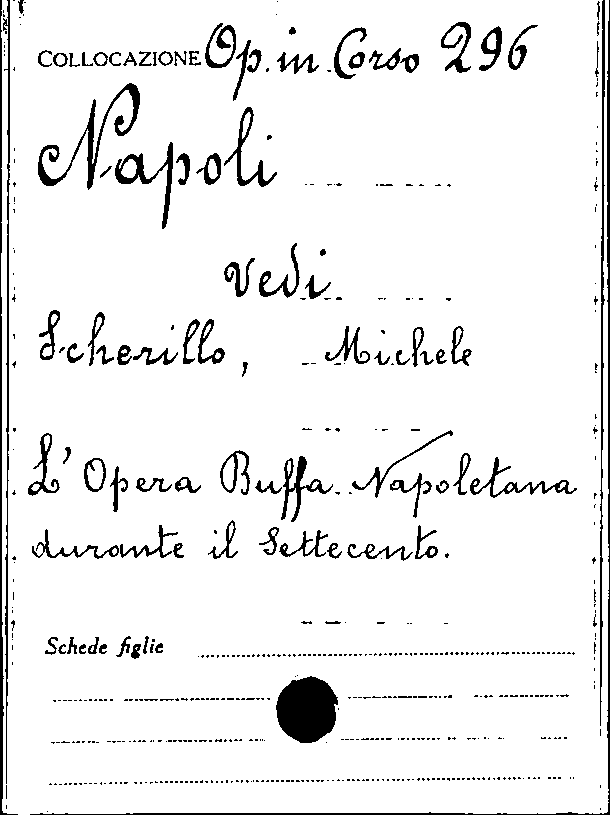 COLLOCAZIONE Op. in Corso 296
Napoli
vedi
Scherillo, Michele
L'Opera Buffa Napoletana
durante il Settecento.
Schede figlie